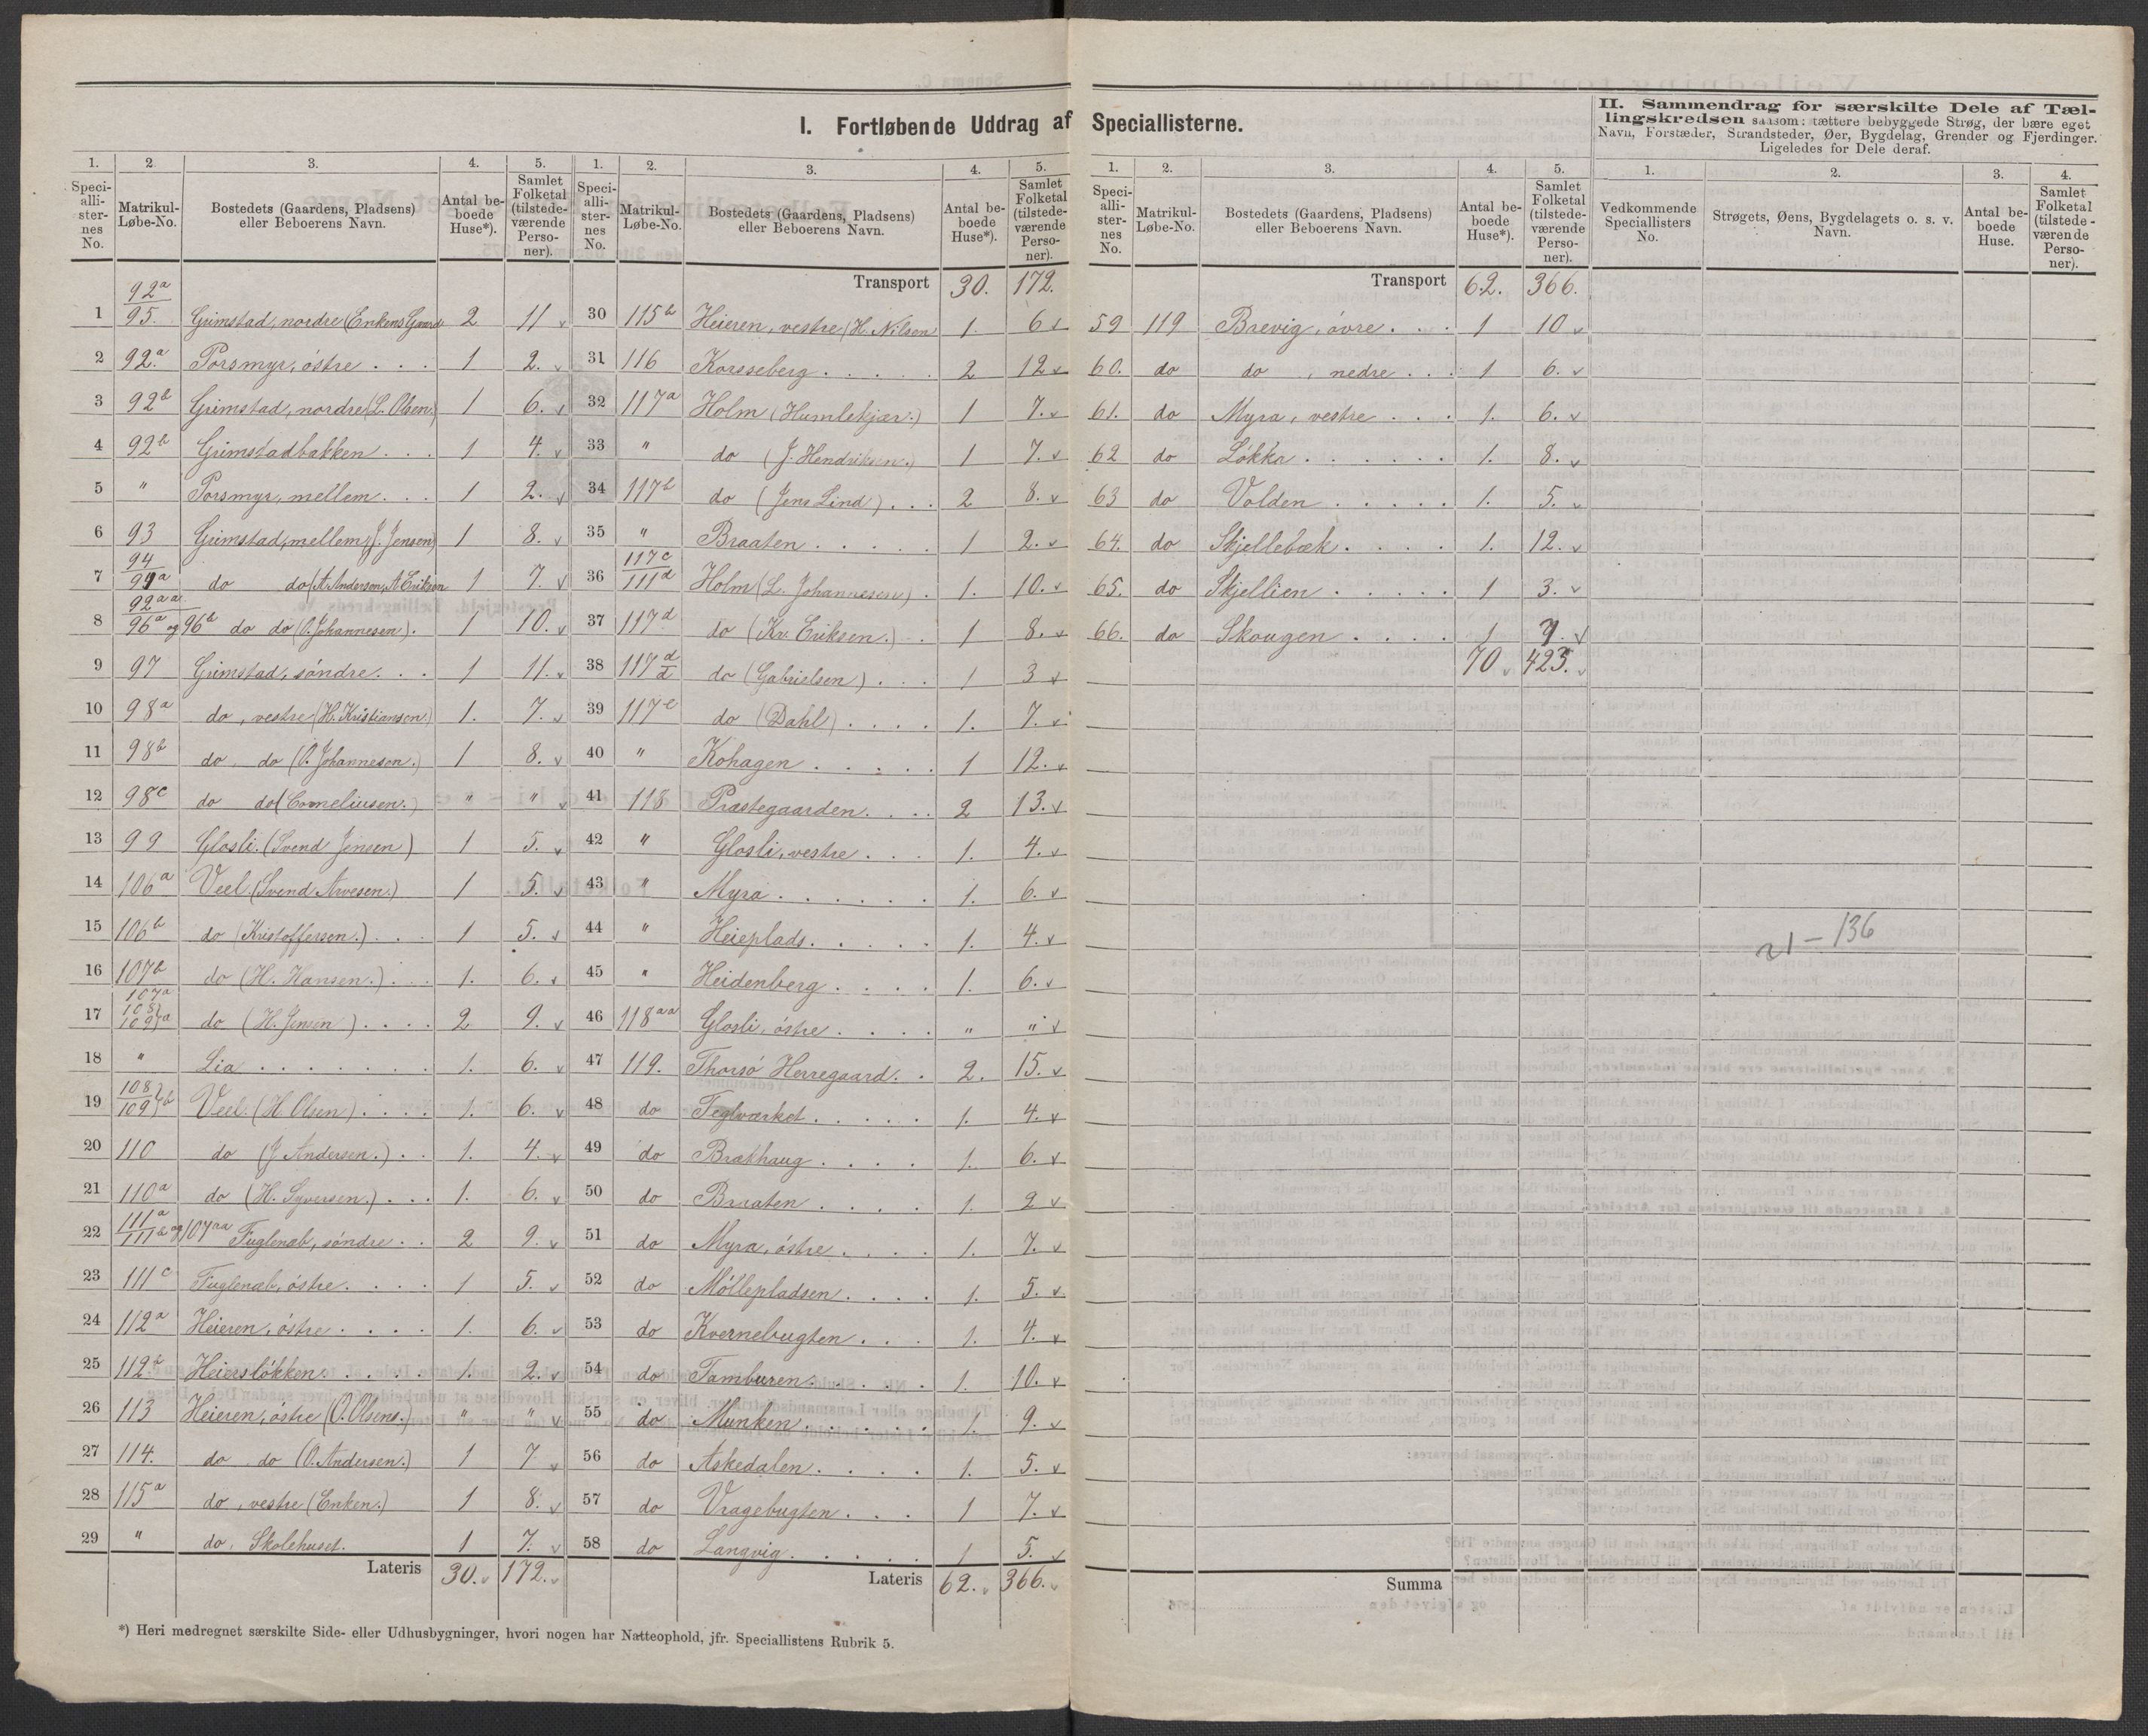 I. Fortløbende Uddrag af Speciallisterne.
II. Sammendrag for særskilte Dele af Tæl-
lingskredsen saasom: tættere bebyggede Strøg, der bære eget
Navn, Forstæder, Strandsteder, Øer, Bygdelag, Grender og Fjerdinger.
Ligeledes for Dele deraf.
1. 2 3. 4. 5.
Speci-alli-ster-nes No. Matrikul-Løbe-No. Bostedets (Gaardens, Pladsen) eller Beboerens Navn. Antal be-boede Huse*). Samlet Folketal (tilstede-værende Perso-ner).
92a
1 95. Grimstad, nordre (Enkens Gaard 2 11 v
2 92a. Porsmyr, östre . . . 1 2. v
3 92b Grimstad, nordre (L. Olsen.) 1 6. v
4 92b Grimstadbakken . . . 1 4. v
5 " Porsmyr, mellem . . . 1 2. v
6 93 Grimstad, mellem (J. Jensen) 1 8. v
94
7 91a do do (A. Andersen, A Eriksen 1 7. v
92aa
8 96a og 96b do do (O. Johannesen). 1 10. v
9 97 Grimstad, söndre. . . 1 11. v
10 98a do, vestre (H. Kristiansen) 1. 7. v
11 98b do do (O. Johannesen.) 1 8. v
12 98c do do (Corneliusen.) " " v
13 99 Glosli. (Svend Jensen) 1 5. v
14 106a Veel (Svend Arvesen.) 1 5. v
15 106b do (Kristoffersen.) . . 1 5. v
16 107b do (H. Hansen.) . . 1. 6. v
107a
17 108 109}a do (H. Jensen) . . . . 2 9. v
18 " Lia . . . . . . . 1. 6. v
19 108 109}b Veel. (H Olsen) . . . . 1. 6. v
20 110 do (J Andersen.) . . 1. 4. v
21 110a do (H. Syversen.) . . . 1. 6. v
22 111a 111b og 107aa Fuglenab, söndre . . 2 9. v
23 111c Fuglenab, östre. . . . 1 5. v
24 112a Heieren, östre . . . . 1. 6. v
25 112b Heiersløkken . . . . . 1. 2. v
26 113 Heieren, östre (O. Olsens.) " " v
27 114. do do (O. Andersen.) 1 7 v
28 115a do, vestre (Enken.) 1 8. v
29 " do. Skolehuset. 1 7. v
Lateris 30. v 172. v
*) Heri medregnet særskilte Side- eller Udhusbygninger, hvori nogen har Natteophold, jfr. Speciallistens Rubrik 5.
1. 2. 3. 4. 5.
Speci-alli-ster-nes No. Matrikul-Løbe-No. Bostedets (Gaardens, Pladsen) eller Beboerens Navn. Antal be-boede Huse*). Samlet Folketal (tilstede-værende Perso-ner).
Transport 30. 172.
30 115b Heieren, vestre (H. Nilsen 1. 6 v
31 116 Korsseberg . . . . . 2 12 v
32 117a Holm (Humlekjær.) 1 7. v
33 " do (J. Hendriksen.) 1 7. v
34 117b do (Jens Lind) . . . 2 8. v
35 " Braaten . . . . . 1 2. v
117c
36 111d Holm (L. Johannesen) . 1. 10. v
37 117d do (Kr. Eriksen.) . 1 8. v
38 117 d/d do (Gabrielsen) . . . 1 3 v
39 117e do (Dahl) . . . . 1. 7. v
40 " Kohagen . . . . . 1 12. v
41 118 Præstegaarden. . . . 2 13. v
42 " Glosli, vestre . . . 1. 4. v
43 " Myra . . . . . . 1. 6. v
44 " Heieplads. . . . . 1. 4. v
45 " Heidenberg . . . . 1. 6. v
46 118aa Glosli, östre . . . . " " v
47 119. Thorsö Herregaard. . 2. 15. v
48 do Teglværket . . . . . 1. 4. v
49 do Brækhaug . . . . 1. 6. v
50 do Braaten . . . . 1. 2 v
51 do Myra, östre . . . . 1. 7. v
52 do Möllepladsen . . . . 1. 5. v
53 do Kvernebugten . . . 1. 4. v
54 do Tamburen . . . . . 1. 10. v
55 do Munken . . . . . . 1. 9. v
56 do Askedalen . . . . 1. 5. v
57 do Vragebugten . . . 1 7. v
58 do Langvig . . . . . 1 5. v
Lateris 62. v 366. v
1. 2. 3. 4. 5.
Speci-alli-ster-nes No. Matrikul-Løbe-No. Bostedets (Gaardens, Pladsen) eller Beboerens Navn. Antal be-boede Huse*). Samlet Folketal (tilstede-værende Perso-ner).
Transport 62. 366.
59 119 Brevig, övre . . . 1 10 v
60. do do, nedre . . . 1 6. v
61. do Myra, vestre . . . 1. 6. v
62 do Lökka . . . . . . 1. 8. v
63 do Volden . . . . . 1. 5. v
64. do Skjellebæk . . . . 1. 12. v
65. do Skjellien . . . . . 1 3. v
66. do Skougen . . . . 1 7. v
70 v 423. v
Summa
1. 2. 3. 4.
Vedkommende Speciallisters No. Strøgets, Øens, Bygdelagets o. s. v. Navn. Antal be-boede Huse. Samlet Folketal (tilstede-værende Perso-ner).
21 – 136